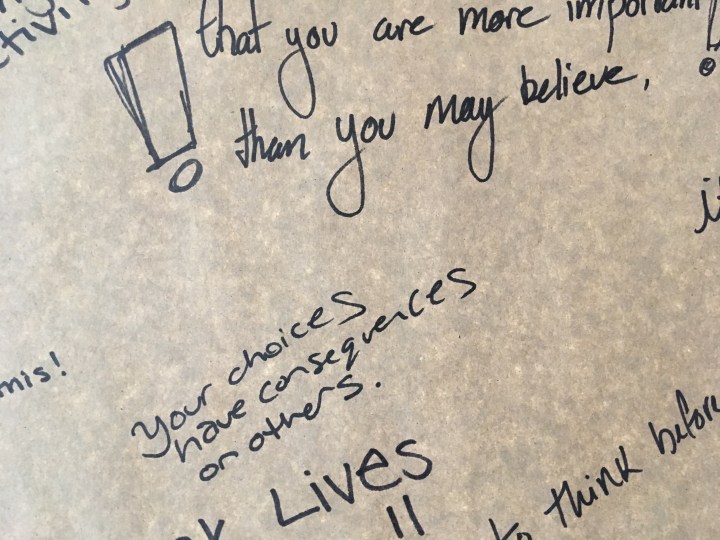 that you are more important
than you may believe,
mis!
Your choices
have consequences
on others.
Lives
to think before